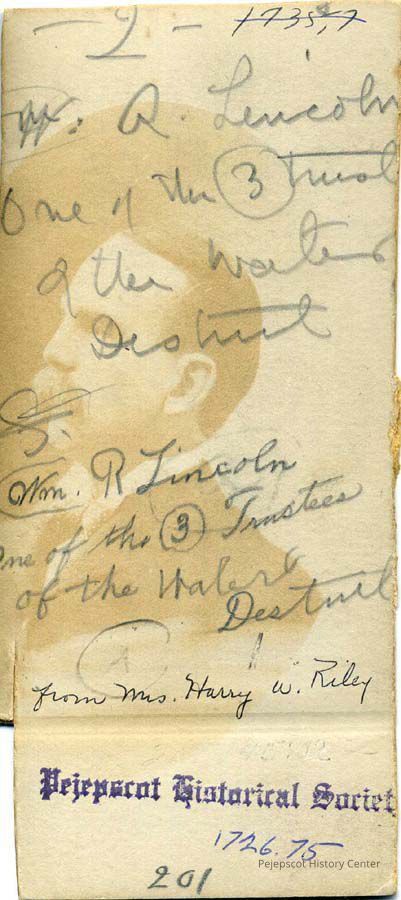 - 2 -
1735.7
W. R. Lincoln
One of the 3 Trust
of the Water
District
5.
Wm. R Lincoln
One of the 3 Trustees
of the Water
Destrict
1
from Mrs. Harry W. Riley
Pejepscot Historical Societ
1726.75
Pejepscot History Center
201